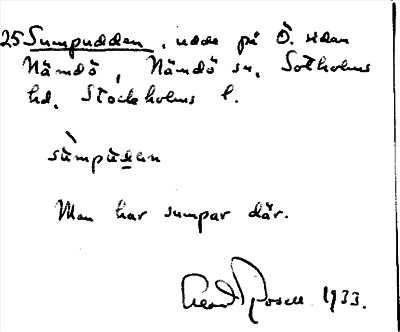 25 Sumpudden, udde på Ö. sidan
Nämdö, Nämdö sn, Sotholms
hd, Stockholms l.
sùmpùdən
Man har sumpar där.
1933.